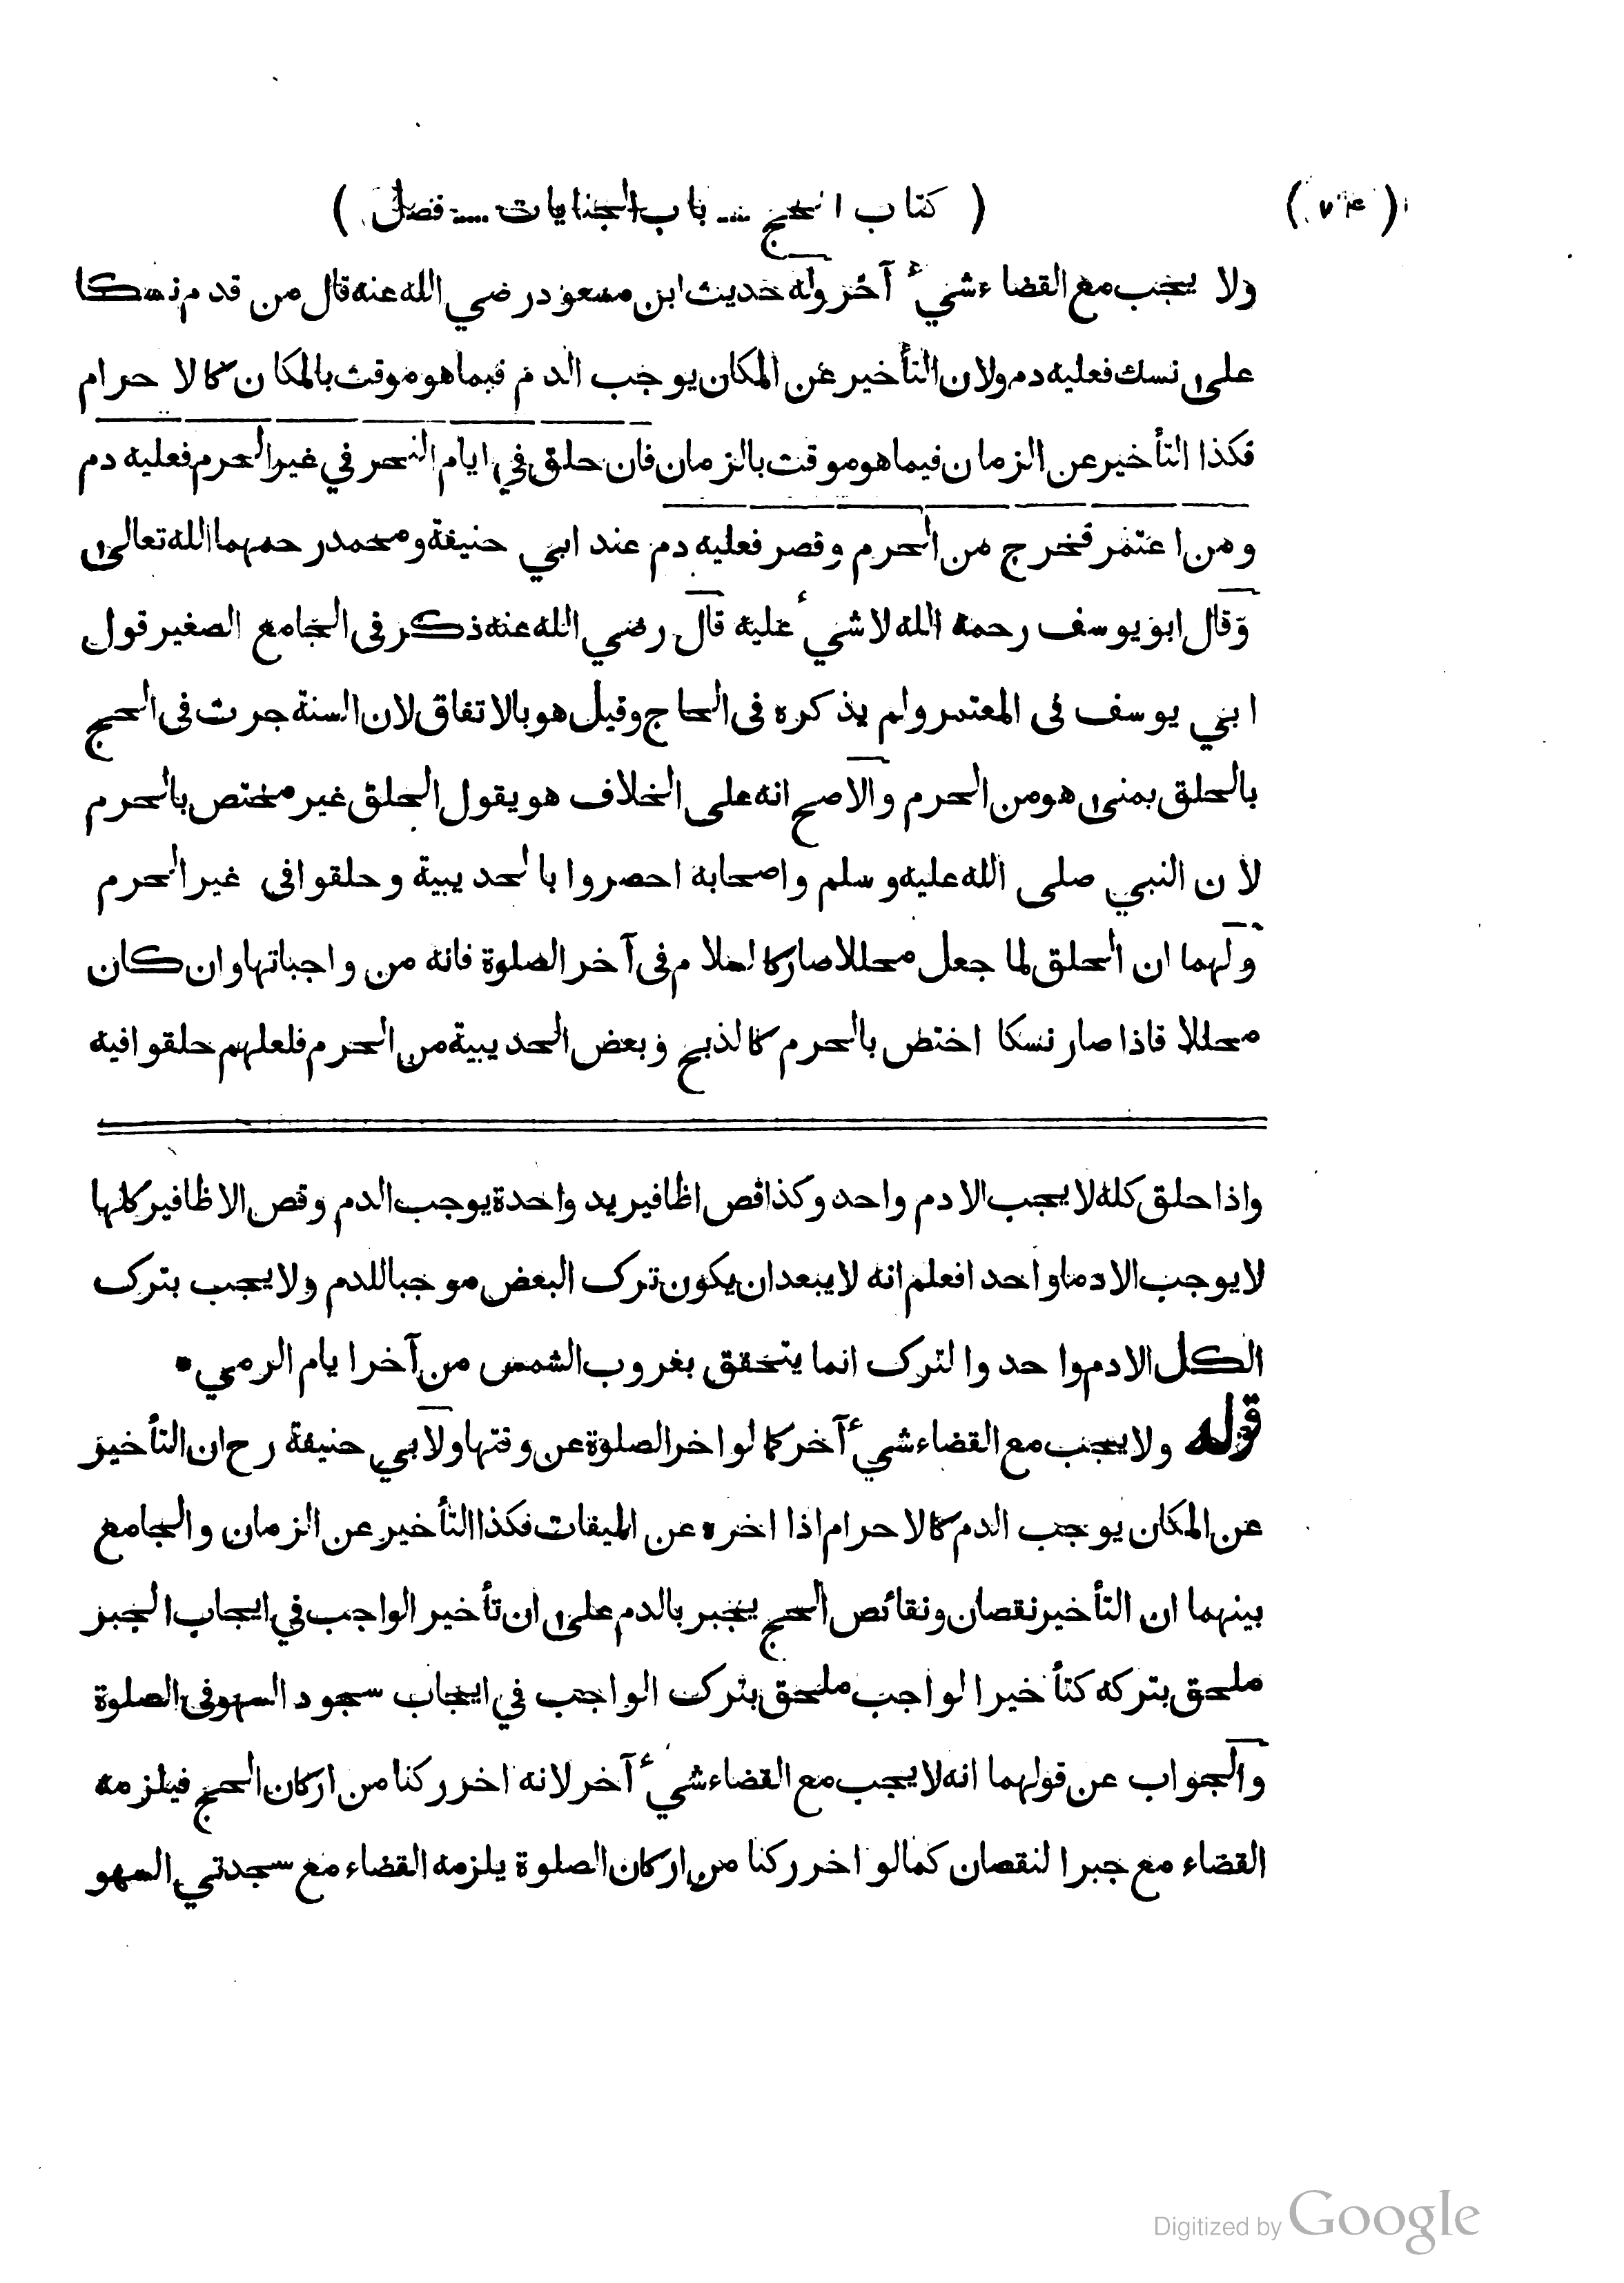 ( كتاب الحج ... باب الجنايات .... فصل )
ولا يجب مع القضاء شيء آخر وله حديث ابن مسعود رضي الله عنه قال من قدم نسكا
على نسك فعليه دم ولان التأخير عن المكان يوجب الدم فيما هو موقت بالمكان كالاحرام
فكذا التأخير عن الزمان فيما هو موقت بالزمان فان حلق في ايام النحر في غير الحرم فعليه دم
ومن اعتمر فخرج من الحرم وقصر فعليه دم عند ابي حنيفة ومحمد رحمهما الله تعالى
وقال ابو يوسف رحمه الله لا شيء عليه قال رضي الله عنه ذكر فى الجامع الصغير قول
ابي يوسف فى المعتمر ولم يذكره فى الحاج وقيل هو بالاتفاق لان السنة جرت فى الحج
بالحلق بمنى هو من الحرم والاصح انه على الخلاف هو يقول الحلق غير مختص بالحرم
لان النبي صلى الله عليه وسلم واصحابه احصروا بالحديبية وحلقوا فى غير الحرم
ولهما ان الحلق لما جعل محللا صار كالسلام فى آخر الصلوة فانه من واجباتها وان كان
محللا فاذا صار نسكا اختص بالحرم كالذبح وبعض الحديبية من الحرم فلعلهم حلقوا فيه
واذا حلق كله لا يجب الا دم واحد وكذا قص اظافير يد واحدة يوجب الدم وقص الاظافير كلها
لا يوجب الا دما واحدا فعلم انه لا يبعد ان يكون ترك البعض موجبا للدم ولا يجب بترك
الكل الا دم واحد والترك انما يتحقق بغروب الشمس من آخر ايام الرمي •
قوله ولا يجب مع القضاء شيء آخر كما لو اخر الصلوة عن وقتها ولابي حنيفة رح ان التأخير
عن المكان يوجب الدم كالاحرام اذا اخره عن الميقات فكذا التأخير عن الزمان والجامع
بينهما ان التأخير نقصان ونقائص الحج يجبر بالدم على ان تأخير الواجب في ايجاب الجبر
ملحق بتركه كتأخير الواجب ملحق بترك الواجب في ايجاب سجود السهو فى الصلوة
والجواب عن قولهما انه لا يجب مع القضاء شيء آخر لانه اخر ركنا من اركان الحج فيلزمه
القضاء مع جبر النقصان كما لو اخر ركنا من اركان الصلوة يلزمه القضاء مع سجدتي السهو
Digitized by Google